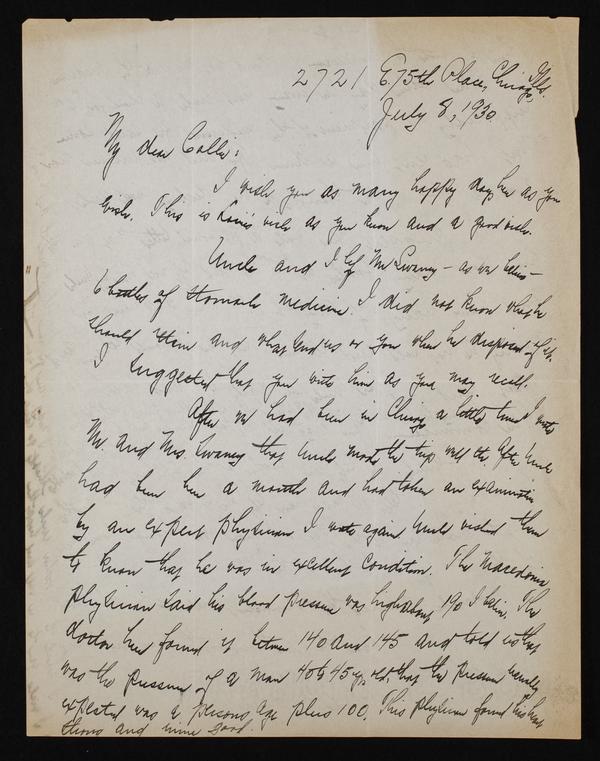 2721 E. 75th Place, Chicago, Ills.
July 8, 1930.
My dear Callie:
I wish you as many happy days here as you
wish. This is Louis' wish as you know and a good wish.
Uncle and I left Mr Swaney - as we believe -
6 bottles of stomach medicine. I did not know what he
should retain and what send us or you when he disposed of it.
I suggested that you write him as you may recall.
After we had been in Chicago a little time I wrote
Mr. and Mrs. Swaney that Uncle made the trip well etc. After Uncle
had been here a month and had taken an examination
by an expert physician I wrote again Uncle wished them
to know that he was in excellent condition. The Macedonia
physician said his blood pressure was high, about 190 I believe. The
doctor here found it between 140 and 145 and told us that
was the pressure of a man 40 to 45 yrs. old, that the pressure usually
expected was a persons age plus 100. This physician found his heart
and urine good.